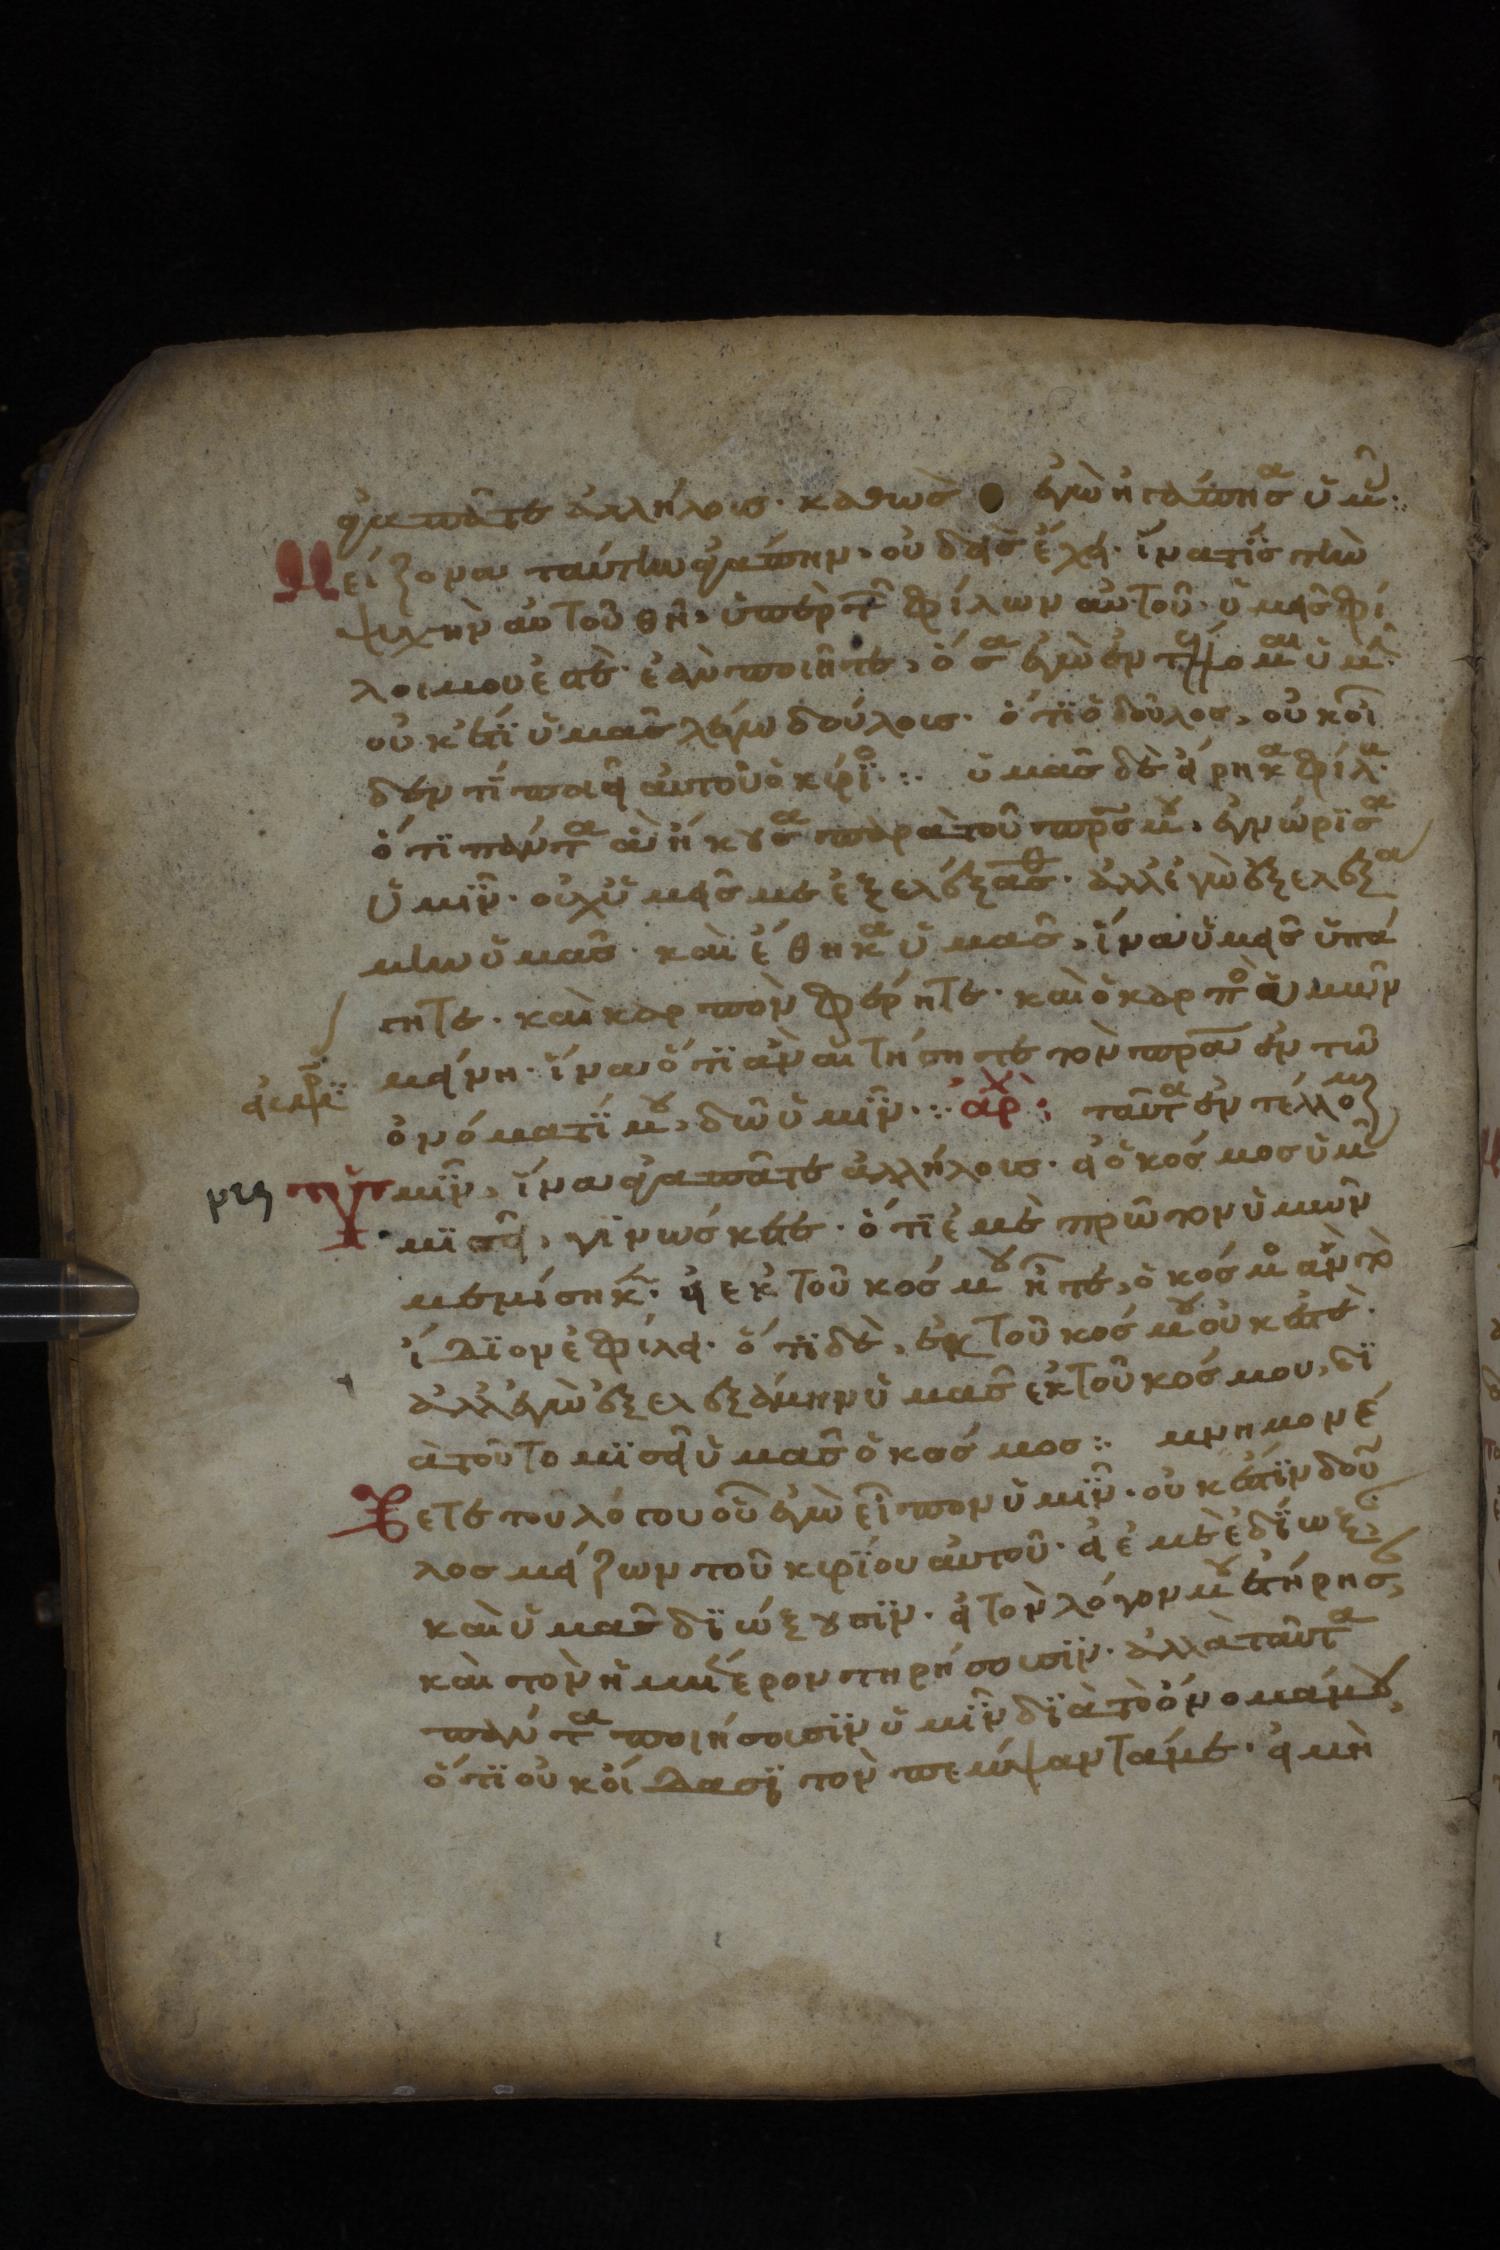 ἀγαπᾶτε ἀλλήλοις· καθὼς ἐγὼ ἠγάπησα ὑμ(ᾶς)
Μείζονα ταύτην ἀγάπην, οὐδεὶς ἔχει· ἵνα τὶς τὴν
ψυχὴν αὐτοῦ θῆ, ὑπὲρ τ(ῶν) φίλων αὐτοῦ· ὑμεῖς φί
λοι μου ἐστὲ· ἐὰν ποιῆτε, ὅσα ἐγὼ ἐντέλλομαι ὑμῖν·
οὐκέτι ὑμᾶς λέγω δούλοις· ὅτι ὁ δοῦλος, οὐκ οἶ
δεν τί ποιεῖ αὐτοῦ ὁ κύριος: ὑμᾶς δὲ εἴρηκα φίλους·
ὅτι πάντα ἃ ἤκουσα παρὰ τοῦ πρς μου, ἐγνώρισα
ὑμῖν· οὐχ ὑμεῖς με ἐξελέξασθε· ἀλλ ἐγὼ ἐξελεξά
μην ὑμᾶς· καὶ ἔθηκα ὑμᾶς, ἵνα ὑμεῖς ὑπά
γητε· καὶ καρπὸν φέρητε· καὶ ὁ καρπὸς ὑμῶν
μένη· ἵνα ὅτι ἂν αἰτήσητε τὸν πρα ἐν τῶ
ὀνόματί μου, δῶ ὑμῖν: ἀρχ: ταῦτα ἐντέλλομαι
ὑμῖν, ἵνα ἀγαπᾶτε ἀλλήλοις· εἰ ὁ κόσμος ὑμᾶς
μισεῖ, γινώσκετε· ὅτι ἐμὲ πρῶτον ὑμῶν
μεμίσηκεν· εἰ ἐκ τοῦ κόσμου ἦτε, ὁ κόσμος ἂν τὸ
ἴδιον ἐφίλει· ὅτι δὲ, ἐκ τοῦ κόσμου οὐκ ἐστὲ·
ἀλλ ἐγὼ ἐξελεξάμην ὑμᾶς ἐκ τοῦ κόσμου, δι
ὰ τοῦτο μισεῖ ὑμᾶς ὁ κόσμος: μνημονέ
ύετε τοῦ λόγου οὗ ἐγὼ εἶπον ὑμῖν· οὐκ ἔστιν δοῦ
λος μείζων τοῦ κυρίου αὐτοῦ· εἰ ἐμὲ ἐδίωξαν,
καὶ ὑμᾶς διώξουσιν· εἰ τὸν λόγον μου ἐτήρησαν,
καὶ τὸν ἡμέτερον τηρήσουσιν· ἀλλὰ ταῦτα
πάντα ποιήσουσιν ὑμῖν διὰ τὸ ὄνομά μου,
ὅτι οὐκ οἴδασι τὸν πέμψαντά με· εἰ μὴ